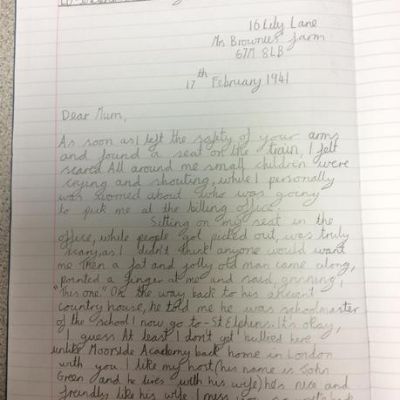 16 Lily Lane
Mrs Brownlees Farm
67M 8LB
17th February 1941
Dear Mum,
As soon as I left the safety of your arms
and found a seat on the train, I felt
scared. All around me small children were
crying and shouting, while I personally
was worried about who was going
to pick me at the billing office.
Sitting on my seat in the
office, while people got picked out, was truly
scary, as I didn't think anyone would want
me. Then a fat and jolly old man came along,
pointed a finger at me and said, grinning,
"This one." On the way back to his elegant
country house, he told me he was schoolmaster
of the school I now go to - St Elphins. It's okay,
I guess. At least I don't get bullied here
unlike Moorside Academy back home in London
with you. I like my host (his name is John
Green and he lives with his wife) he's nice and
friendly like his wife. I miss you